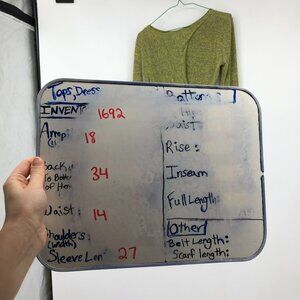 Tops, Dress
INVENT 1692
18
34
Waist: 14
Shoulders
(width)
Sleeve Len 27
Bottoms
Waist:
Rise:
Inseam
Full Length:
Other
Belt Length:
Scarf length: